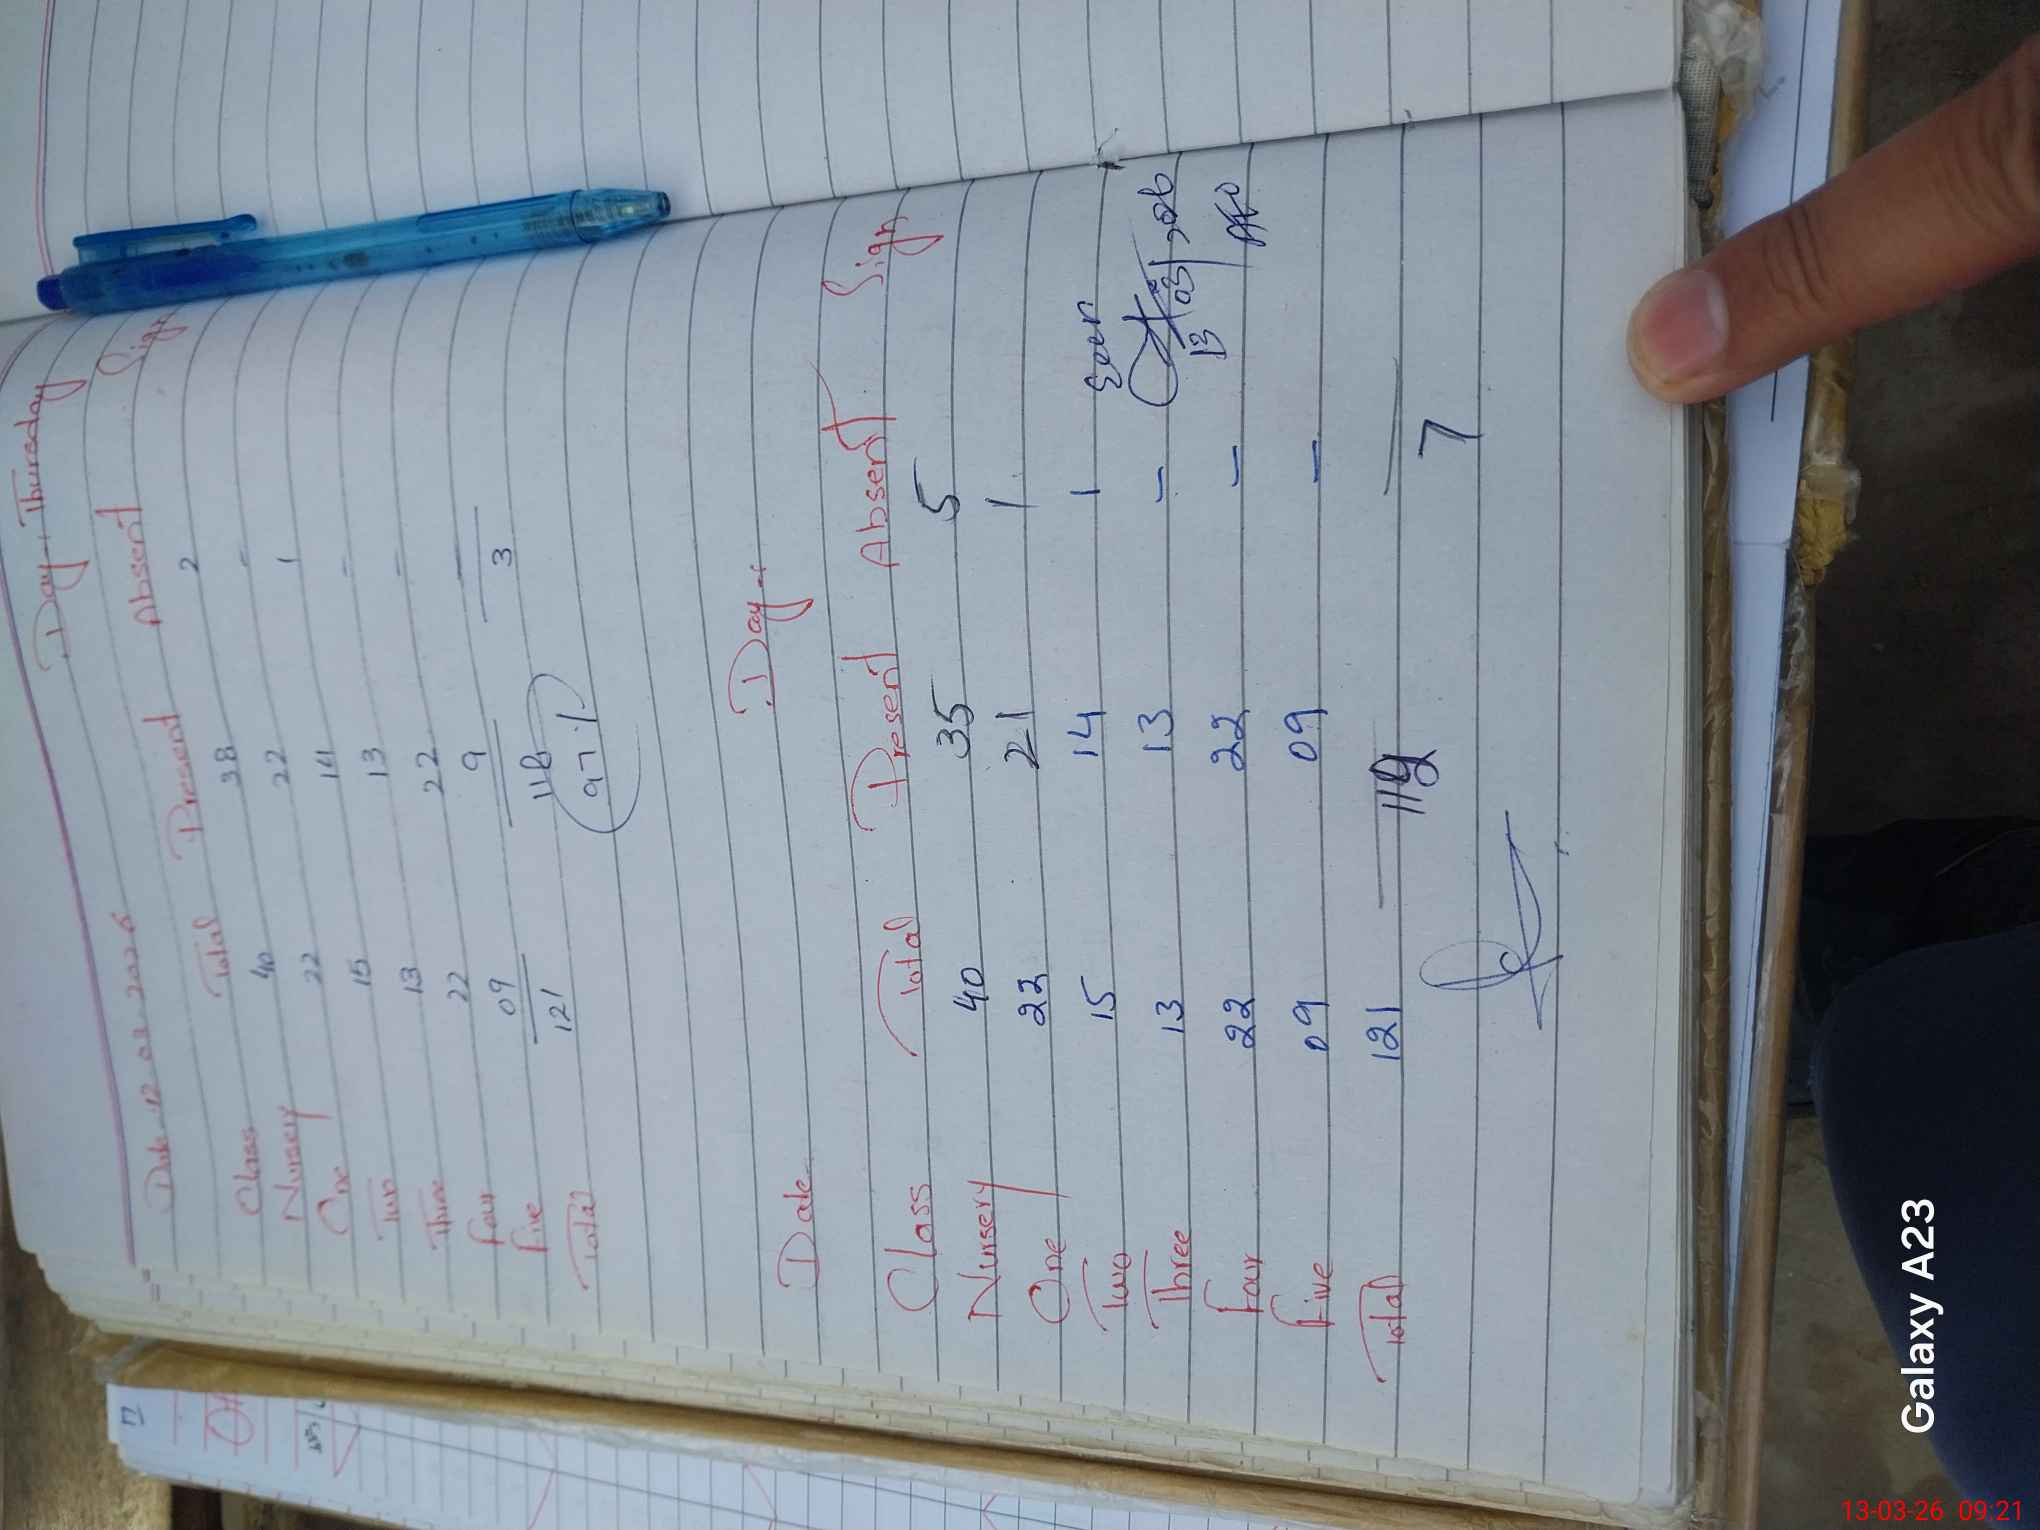 Day: Thursday
Date 12.03.2026
Class Total Present Absent Sign
Nursery 40 38 2
One 22 22 -
Two 15 14 1
Three 13 13 -
Four 22 22 -
Five 09 9 —
Total 121 118 3
97.1
Date Day:
Class Total Present Absent Sign
Nursery 40 35 5
One 22 21 1
Two 15 14 1 Seen
Three 13 13 -
Four 22 22 - 13/03/26
Five 09 09 -
Total 121 7
Galaxy A23
13-03-26 09:21